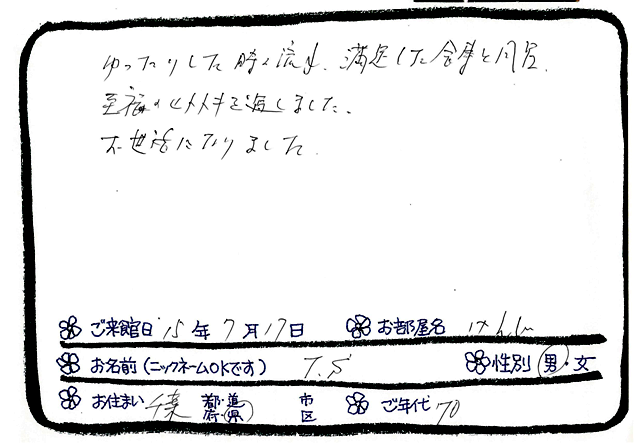 ゆったりした時の流れ、満足した食事と風呂、
至福のひとときを過しました。
お世話になりました
ご来館日 15年7月17日 お部屋名 けんし
お名前(ニックネームOKです) T.S 性別 男・女
お住まい 千葉 都・道 府・県 市 区 ご年代 70